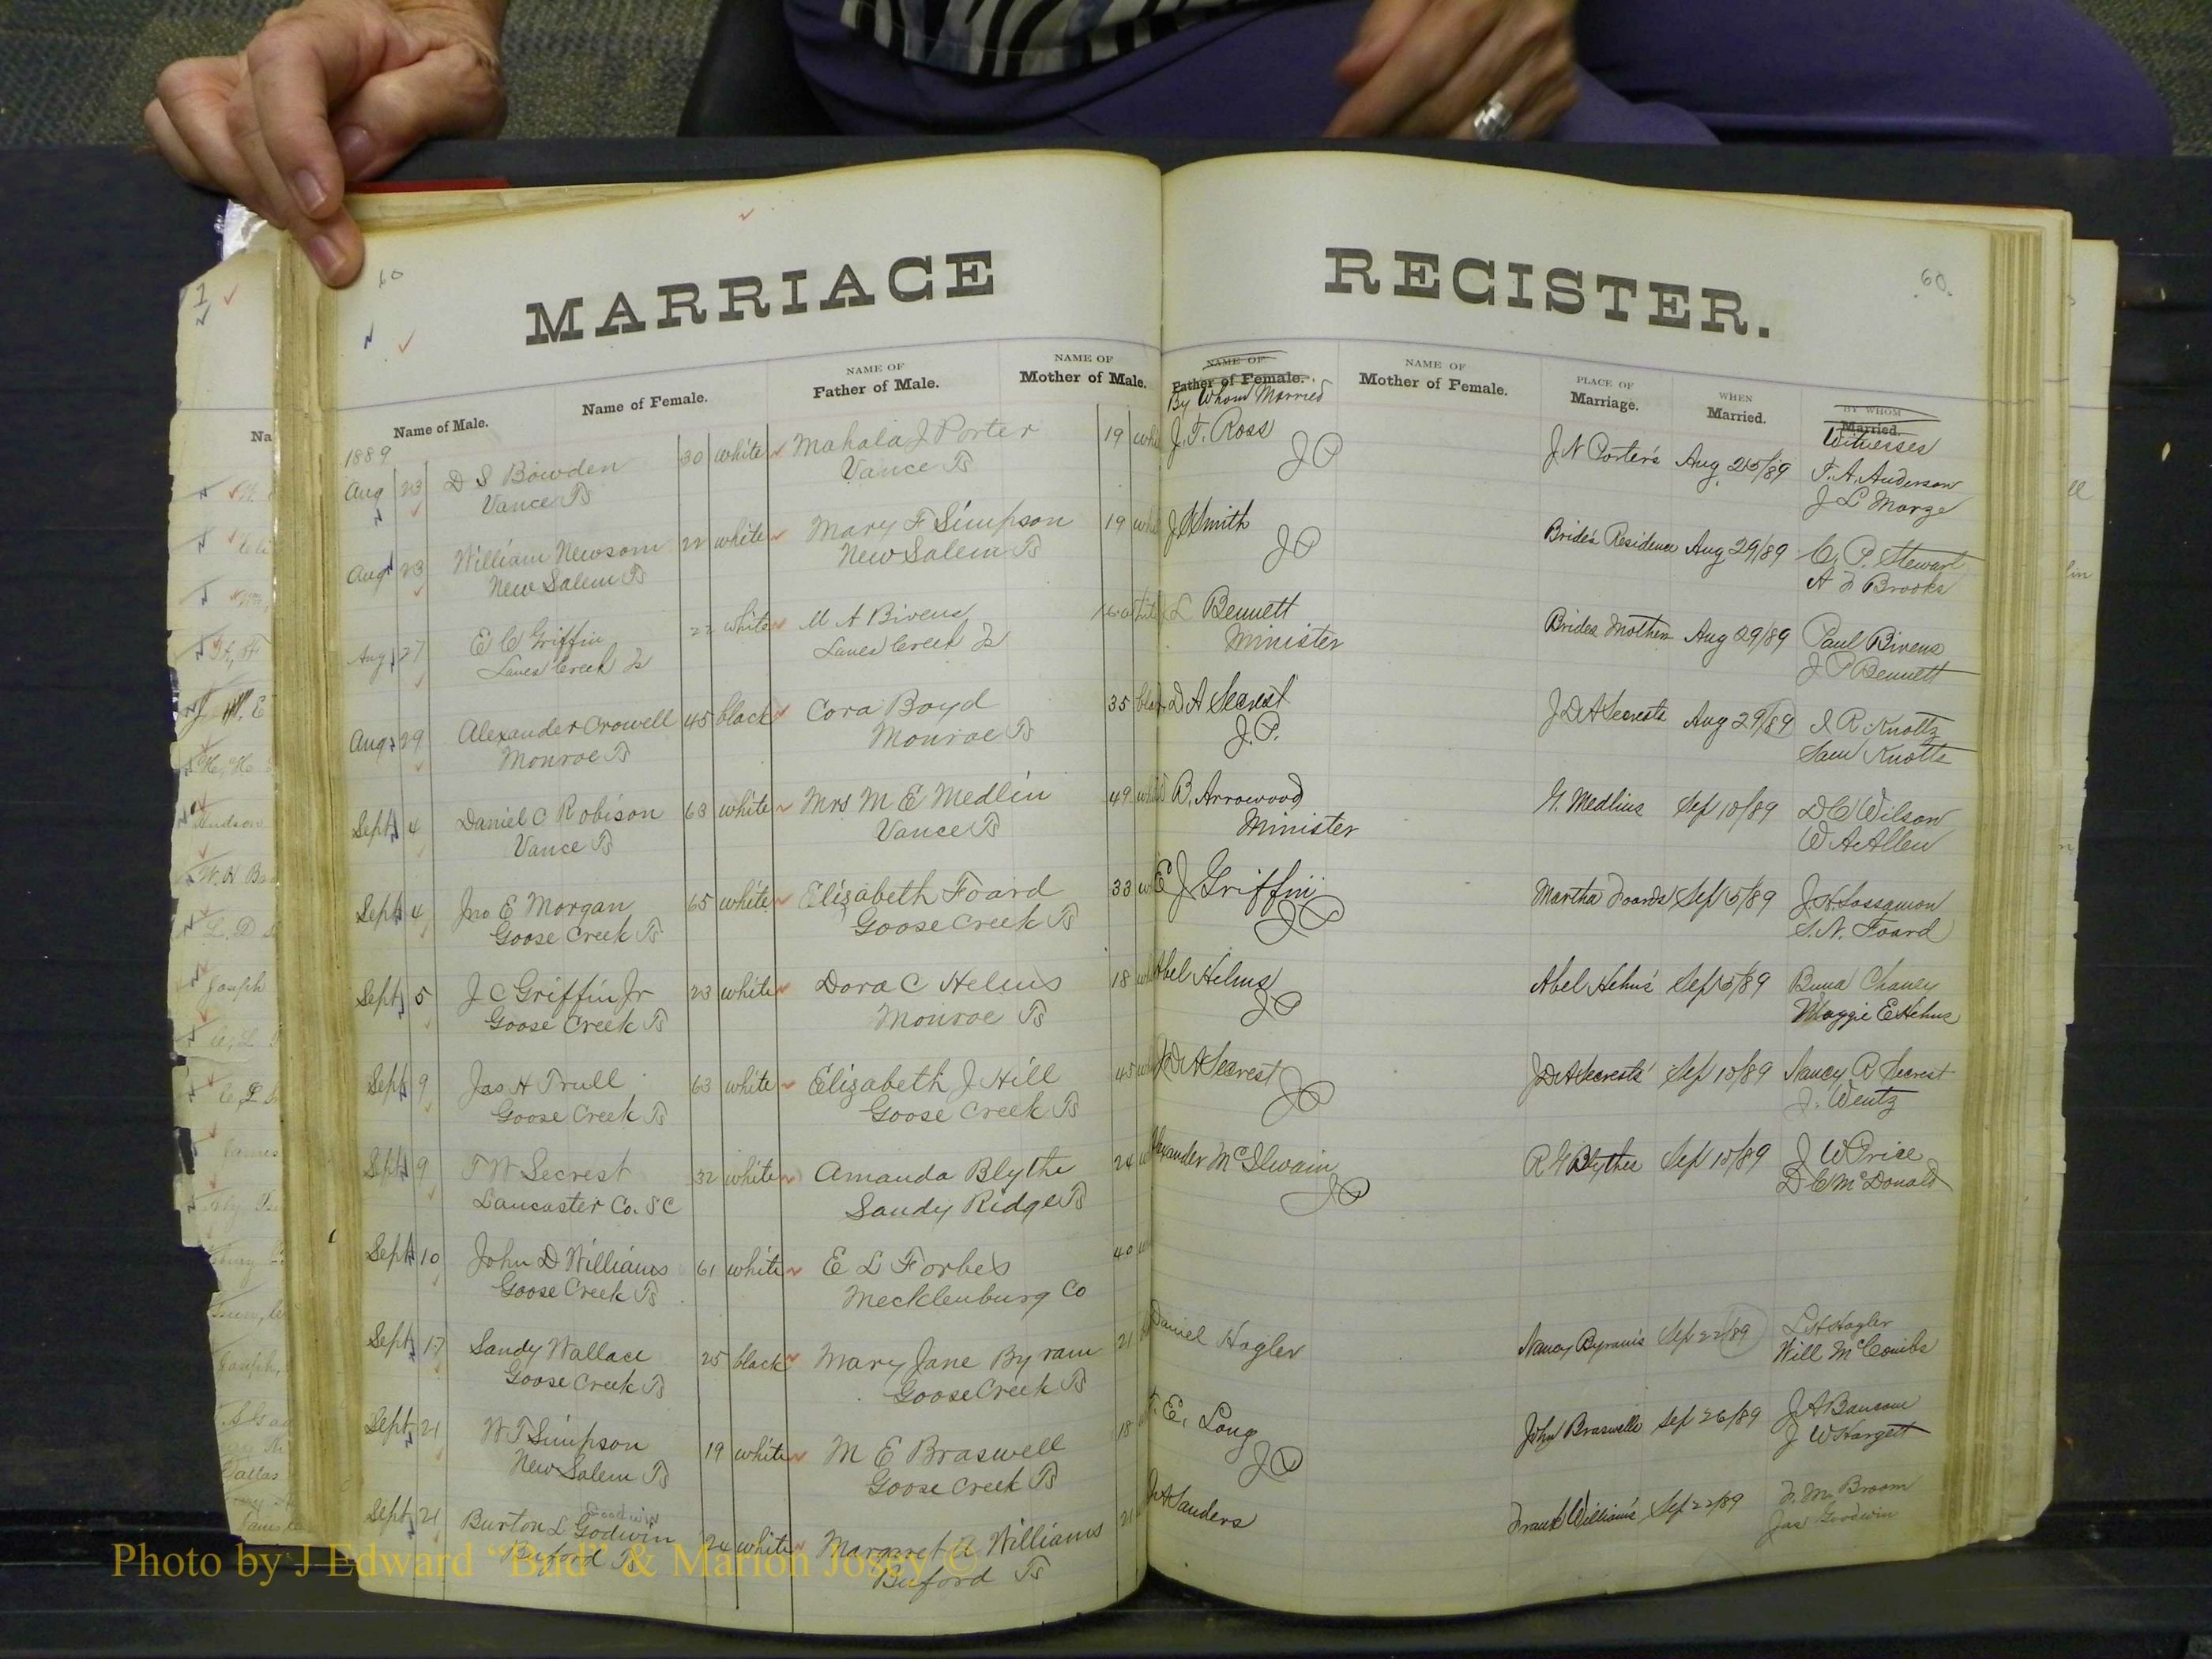 60
MARRIAGE REGISTER.
60.
Name of Male.
Name of Female.
NAME OF
Father of Male.
NAME OF
Mother of Male.
NAME OF
Father of Female.
By Whom Married
NAME OF
Mother of Female.
PLACE OF
Marriage.
WHEN
Married.
BY WHOM
Married.
Witnesses
1889
Aug 23 D S Bowden 30 white Mahala J Porter 19 J. T. Ross J N Porter's Aug 25/89 T. A. Anderson
Vance Ts Vance Ts JP J L
Aug 23 William Newsom 22 white Mary F Simpson 19 Smith Bride's Residence Aug 29/89 C. P. Stewart
New Salem Ts New Salem Ts JP Brooks
Aug 27 E C Griffin 22 white M A Bivens L Bennett Brides Mothers Aug 29/89 Paul Bivens
Lanes Creek Ts Lanes Creek Ts Minister J P Bennett
Aug 29 Alexander Crowell 45 black Cora Boyd 35 D A Secrest J D A Secrests Aug 29/89 Knotts
Monroe Ts Monroe Ts J.P. Sam Knotts
Sept 4 Daniel C Robison 63 white Mrs M E Medlin 49 B. Arrowood Medlins Sep 10/89 D C Wilson
Vance Ts Vance Ts Minister W A Allen
Sept 4 Jno E Morgan 65 white Elizabeth Foard 33 E J Griffin Martha Foards Sep 5/89 J. H. Sossamon
Goose Creek Ts Goose Creek Ts JP S. N. Foard
Sept 5 J C Griffin Jr 23 white Dora C Helms 18 Abel Helms Abel Helms' Sep 5/89 Chaney
Goose Creek Ts Monroe Ts JP Maggie E Helms
Sept 9 Jas H Trull 63 white Elizabeth J Hill 45 J D A Secrest J D A Secrests' Sep 10/89 Nancy R Secrest
Goose Creek Ts Goose Creek Ts JP J. Wentz
Sept 9 T W Secrest 32 white Amanda Blythe 24 Alexander McIlwain Blythes Sep 10/89 J W Price
Lancaster Co. SC Sandy Ridge Ts JP D C McDonald
Sept 10 John D Williams 61 white E L Forbes 40
Goose Creek Ts Mecklenburg Co
Sept 17 Sandy Wallace 25 black Mary Jane Byram 21 Daniel Hagler Nancy Byrams Sep 22/89 Hagler
Goose Creek Ts Goose Creek Ts Will McCombs
Sept 21 W T Simpson 19 white M E Braswell 18 E. Long John Braswells Sep 26/89 J A Baucom
New Salem Ts Goose Creek Ts JP J W Hargett
Goodwin
Sept 21 Burton L Godwin 24 white Margaret A Williams 21 Sanders Frank Williams Sep 22/89 Broom
Buford Ts Buford Ts Jas Goodwin
Photo by J Edward “Bud” & Marion Josey ©